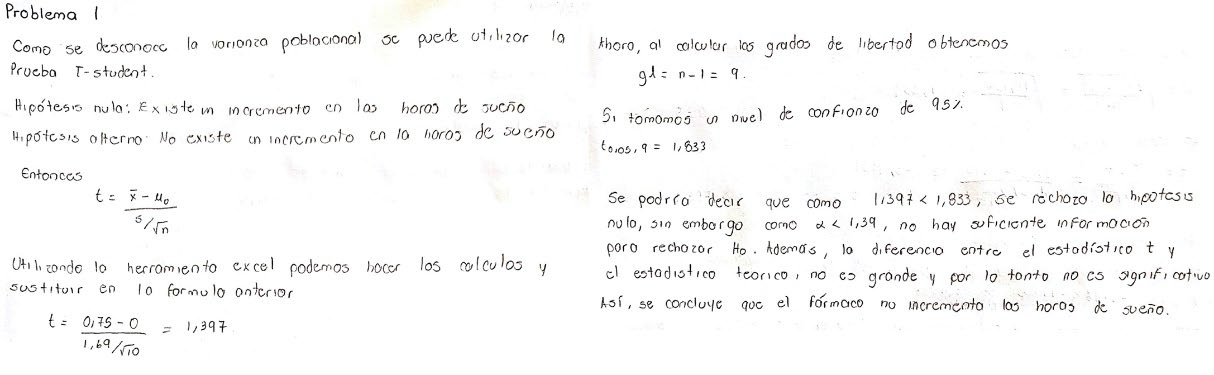 Problema 1
Como se desconoce la varianza poblacional se puede utilizar la
Prueba T-student.
Hipótesis nula: Existe un incremento en las horas de sueño
Hipótesis alterna: No existe un incremento en la horas de sueño
Entonces
t = x̄ - μ₀ / s/√n
Utilizando la herramienta excel podemos hacer los calculos y
sustituir en la formula anterior
t = 0,75 - 0 / 1,69/√10 = 1,397
Ahora, al calcular los grados de libertad obtenemos
gl = n - 1 = 9.
Si tomamos un nivel de confianza de 95%.
t0,05, 9 = 1,833
Se podría decir que como 1,397 < 1,833, se rechaza la hipótesis
nula, sin embargo como α < 1,39, no hay suficiente información
para rechazar Ho. Además, la diferencia entre el estadístico t y
el estadistico teorico, no es grande y por lo tanto no es significativo
Así, se concluye que el fármaco no incrementa las horas de sueño.